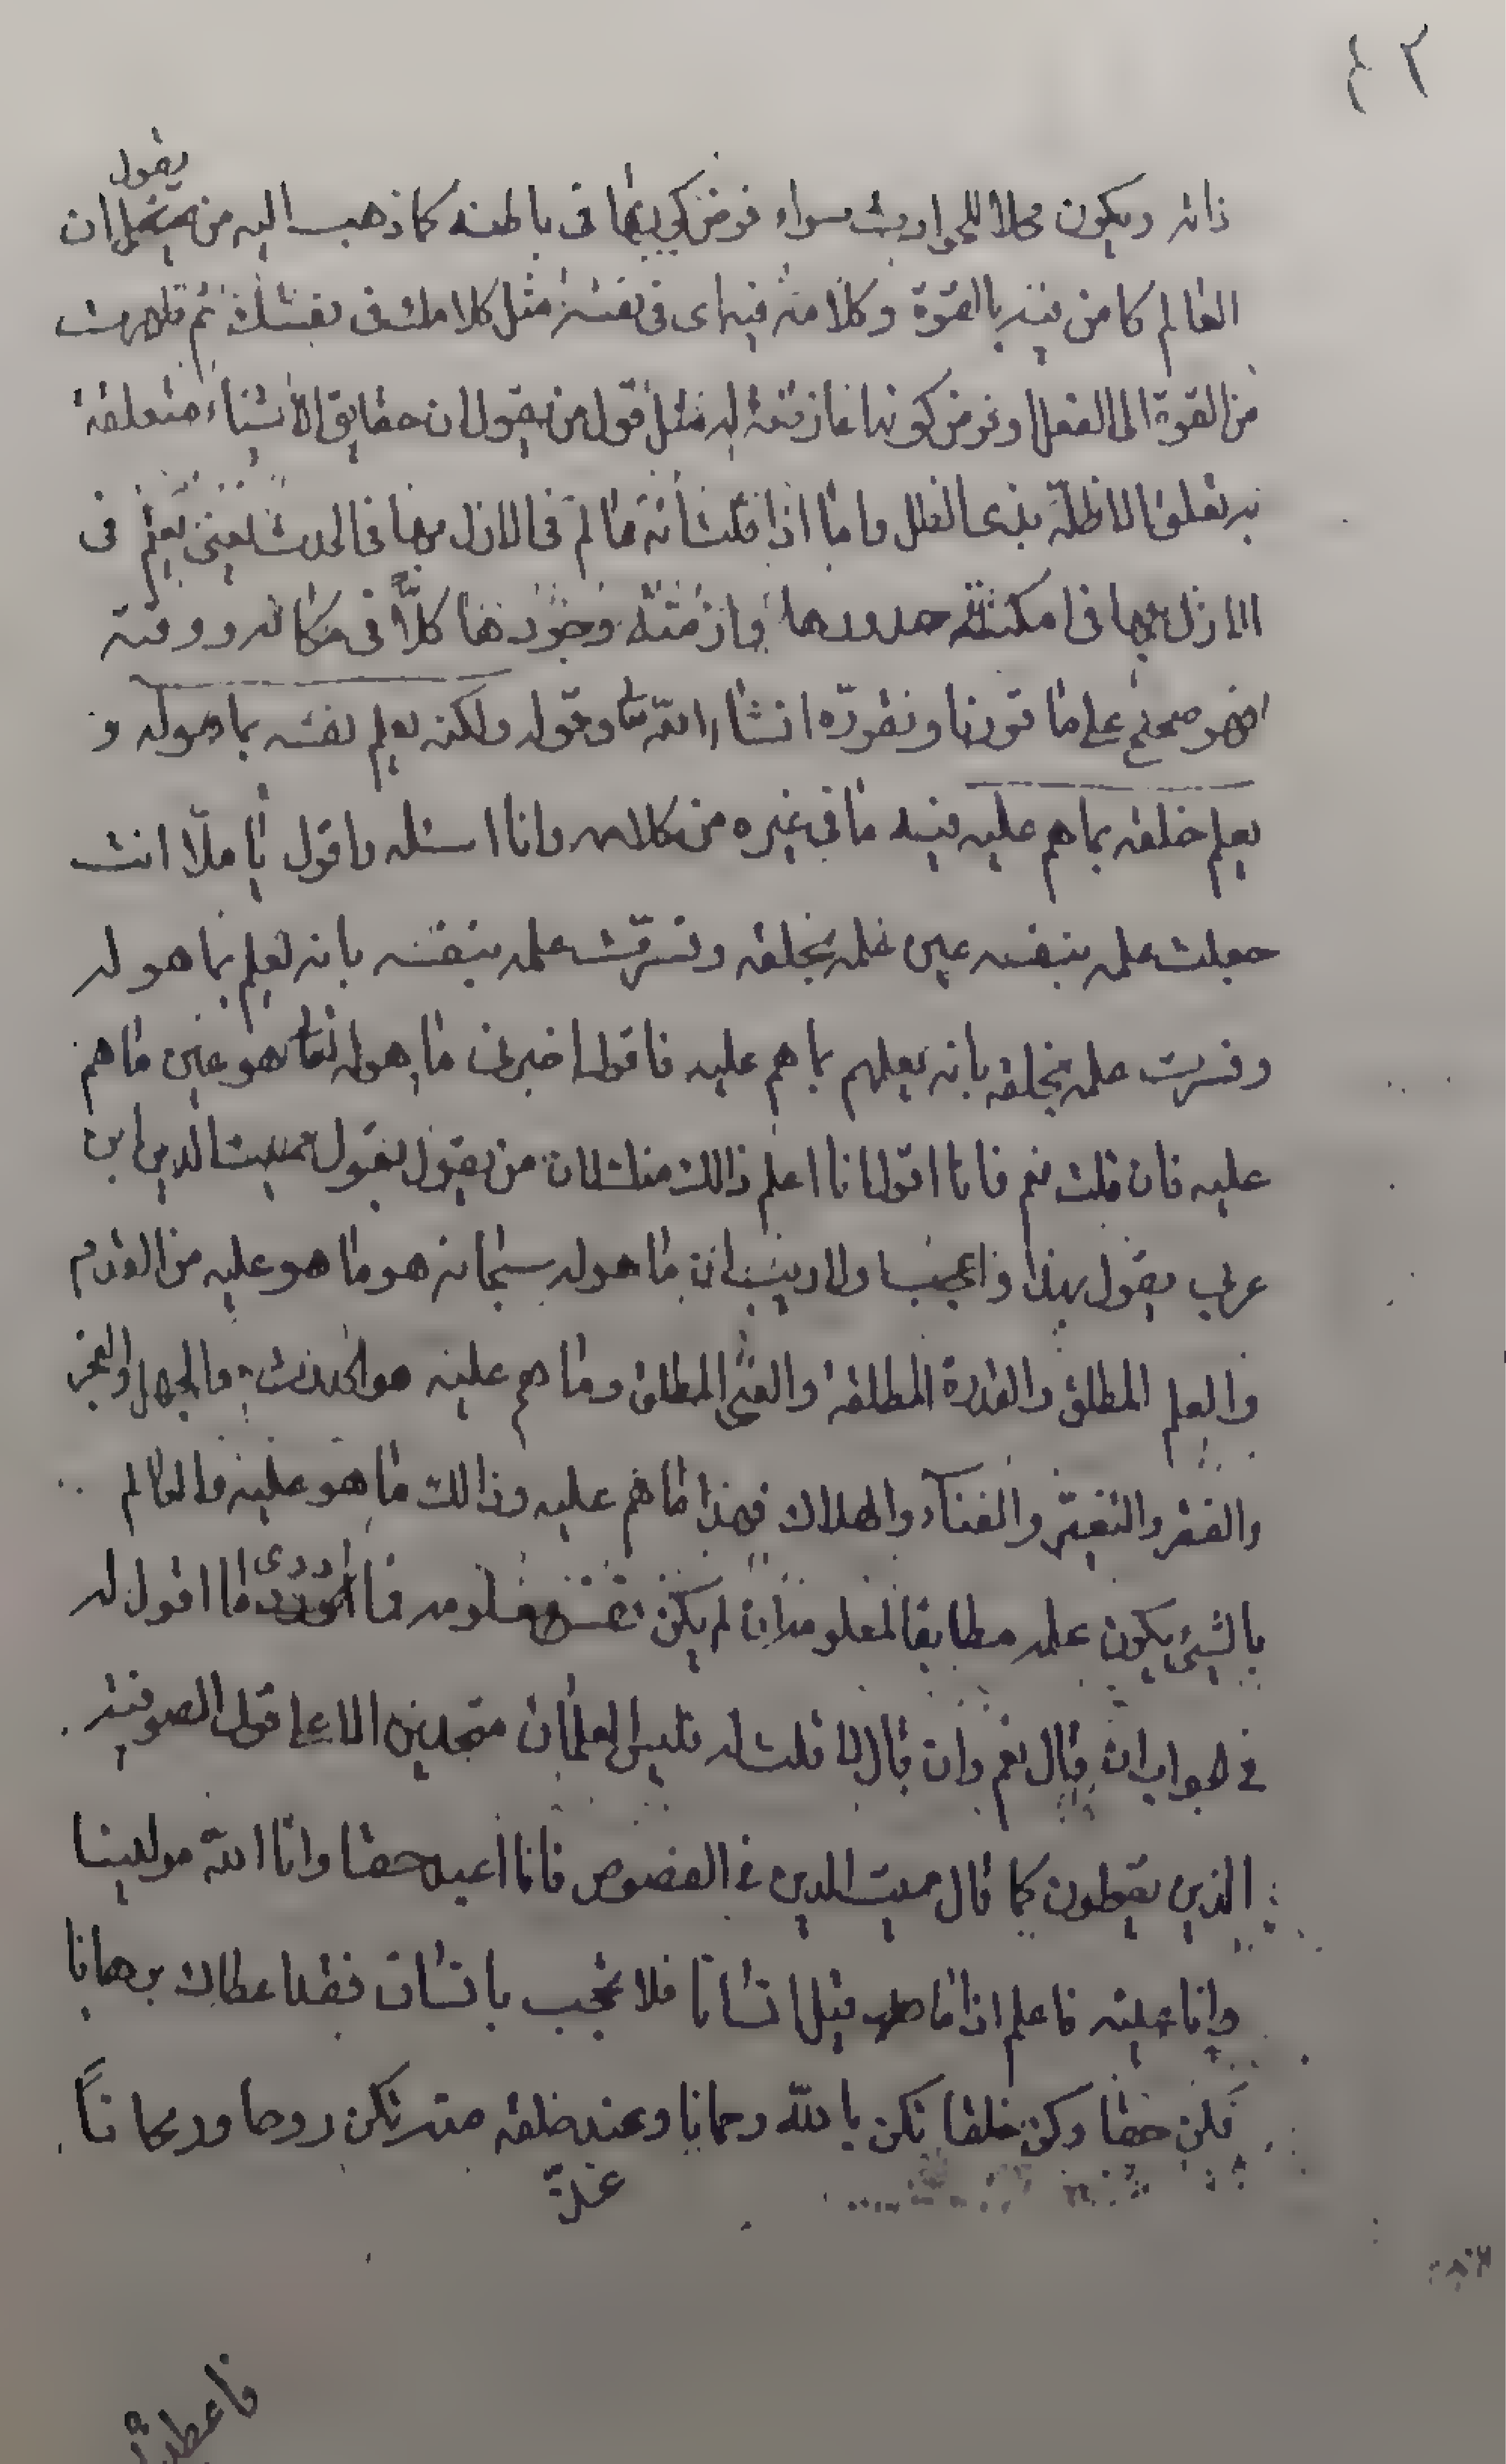 ٤٢
يقول
ذاته ويكون محلا للحوادث سواء فرض كونها فى باطنه كما ذهب اليه من ان
العالم كامن فيه بالقوة وكلامه فيه اى فى نفسه مثل كلامك فى نفسك ثم ظهرت
من القوة الى الفعل او فرض كونها عارضة له مثل قول من يقول ان حقايق الاشياء متعلقة
به تعلق الاظلة بذى الظل واما اذا قلت انه عالم فى الازل بها فى الحدث يعنى يعلم فى
الازل بها فى امكنة حدودها وازمنة وجودها كلاً فى مكانه ووقته
فهو صحيح على ما قررنا ونقرره انشاء الله تعالى وقوله ولكنه يعلم نفسه بما هو له و
يعلم خلقه بما هم عليه فيه ما فى غيره من كلامه وانا اسئله واقول يا ملّا انت
جعلت علمه بنفسه عين علمه بخلقه وفسرت علمه بنفسه بانه يعلم بما هو له
وفسرت علمه بخلقه بانه يعلمهم بما هم عليه فاقول اخبرنى ما هو له تعالى هو عين ما هم
عليه فان قلت نعم فانا اقول انا اعلم ذالك منك لان من يقول بقول مميت الدين ابن
عربي يقول بهذا واعجب ولا ريب ان ما هو له سبحانه هو ما هو عليه من القدم
والعلم المطلق والقدرة المطلقة والغنى المطلق وما هم عليه هو الحدث والجهل والعجز
والفقر والتغيّر والفناء والهلاك فهذا ما هم عليه وذالك ما هو عليه والعالم
بالشئ يكون علمه مطابقا لمعلومه ان لم يكن نفس معلومه فما ادرى ما اقول له
فى جوابه ان قال نعم وان قال لا قلت له فليس العلمان متحدين الا على قول الصوفية
الذين يقولون كما قال مميت الدين فى الفصوص فانا اعبد حقا وانا الله مولينا
وانا عينه فاعلم اذا ما قيل انسانا فلا تحجب بانسان فقد اعطاك برهانا
فكن حقا وكن خلقا تكن بالله رحمانا وغذ خلقه منه تكن روحا وريحاناً